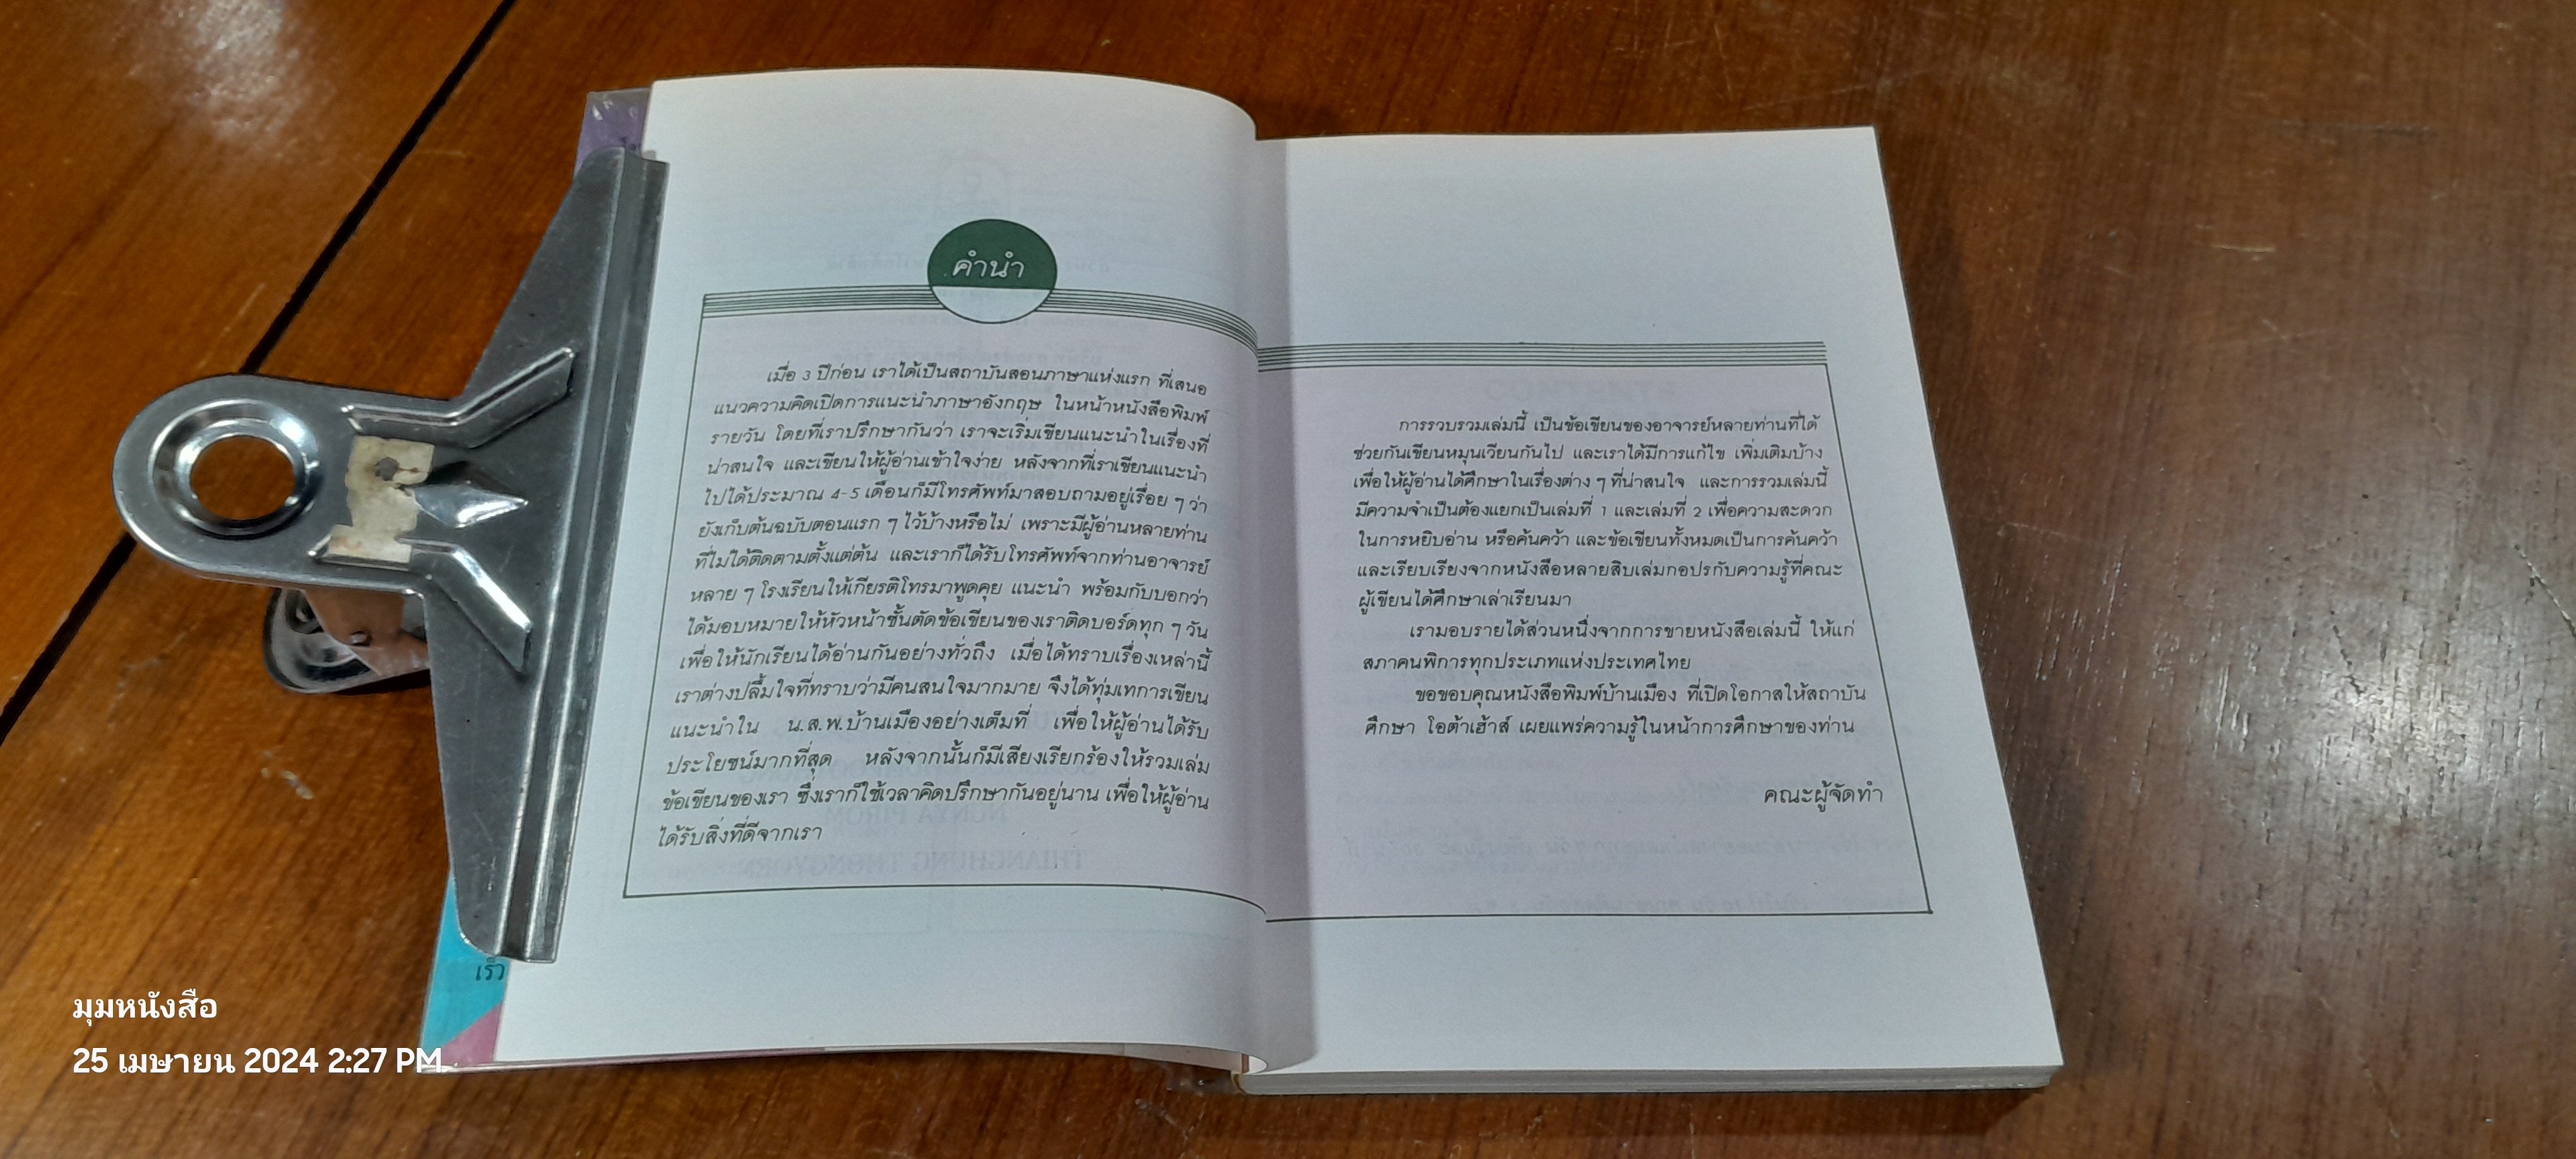 คำนำ
เมื่อ 3 ปีก่อน เราได้เป็นสถาบันสอนภาษาแห่งแรก ที่เสนอ
แนวความคิดเปิดการแนะนำภาษาอังกฤษ ในหน้าหนังสือพิมพ์
รายวัน โดยที่เราปรึกษากันว่า เราจะเริ่มเขียนแนะนำในเรื่องที่
น่าสนใจ และเขียนให้ผู้อ่านเข้าใจง่าย หลังจากที่เราเขียนแนะนำ
ไปได้ประมาณ 4-5 เดือนก็มีโทรศัพท์มาสอบถามอยู่เรื่อย ๆ ว่า
ยังเก็บต้นฉบับตอนแรก ๆ ไว้บ้างหรือไม่ เพราะมีผู้อ่านหลายท่าน
ที่ไม่ได้ติดตามตั้งแต่ต้น และเราก็ได้รับโทรศัพท์จากท่านอาจารย์
หลาย ๆ โรงเรียนให้เกียรติโทรมาพูดคุย แนะนำ พร้อมกับบอกว่า
ได้มอบหมายให้หัวหน้าชั้นตัดข้อเขียนของเราติดบอร์ดทุก ๆ วัน
เพื่อให้นักเรียนได้อ่านกันอย่างทั่วถึง เมื่อได้ทราบเรื่องเหล่านี้
เราต่างปลื้มใจที่ทราบว่ามีคนสนใจมากมาย จึงได้ทุ่มเทการเขียน
แนะนำใน น.ส.พ.บ้านเมืองอย่างเต็มที่ เพื่อให้ผู้อ่านได้รับ
ประโยชน์มากที่สุด หลังจากนั้นก็มีเสียงเรียกร้องให้รวมเล่ม
ข้อเขียนของเรา ซึ่งเราก็ใช้เวลาคิดปรึกษากันอยู่นาน เพื่อให้ผู้อ่าน
ได้รับสิ่งที่ดีจากเรา
การรวบรวมเล่มนี้ เป็นข้อเขียนของอาจารย์หลายท่านที่ได้
ช่วยกันเขียนหมุนเวียนกันไป และเราได้มีการแก้ไข เพิ่มเติมบ้าง
เพื่อให้ผู้อ่านได้ศึกษาในเรื่องต่าง ๆ ที่น่าสนใจ และการรวมเล่มนี้
มีความจำเป็นต้องแยกเป็นเล่มที่ 1 และเล่มที่ 2 เพื่อความสะดวก
ในการหยิบอ่าน หรือค้นคว้า และข้อเขียนทั้งหมดเป็นการค้นคว้า
และเรียบเรียงจากหนังสือหลายสิบเล่มกอปรกับความรู้ที่คณะ
ผู้เขียนได้ศึกษาเล่าเรียนมา
เรามอบรายได้ส่วนหนึ่งจากการขายหนังสือเล่มนี้ ให้แก่
สภาคนพิการทุกประเภทแห่งประเทศไทย
ขอขอบคุณหนังสือพิมพ์บ้านเมือง ที่เปิดโอกาสให้สถาบัน
ศึกษา โอต้าเฮ้าส์ เผยแพร่ความรู้ในหน้าการศึกษาของท่าน
คณะผู้จัดทำ
เร็ว
มุมหนังสือ
25 เมษายน 2024 2:27 PM